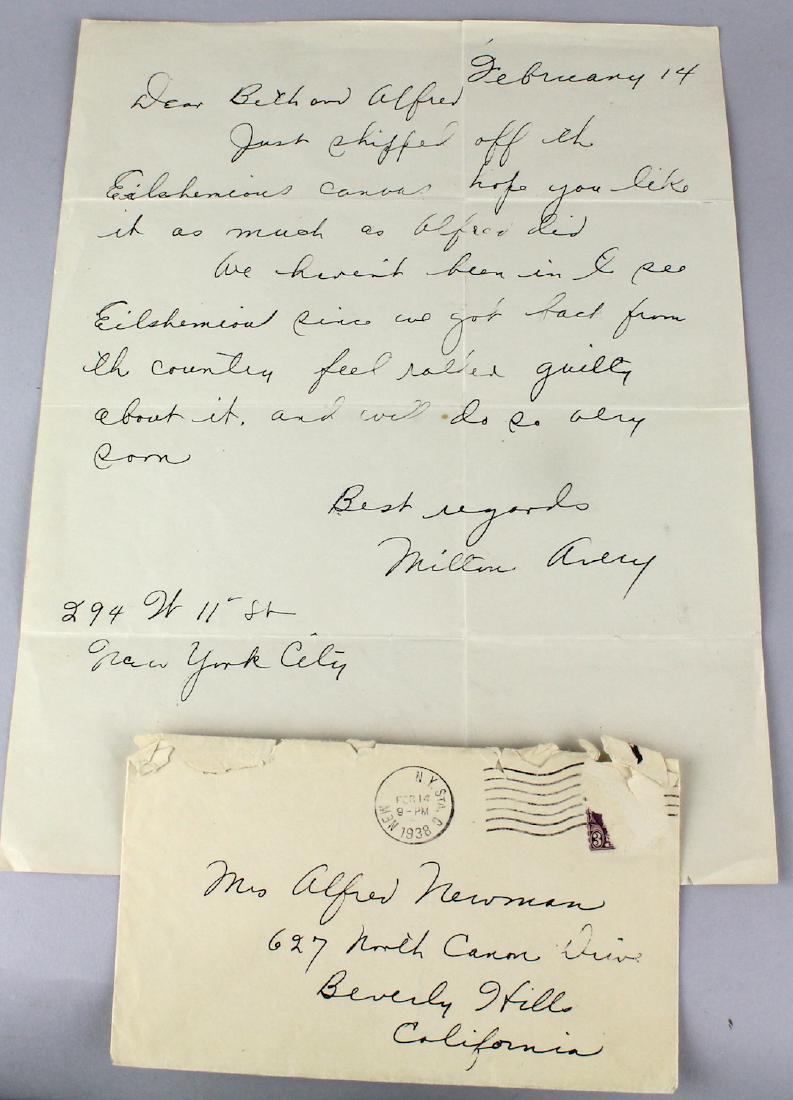 February 14
Dear Beth and Alfred
Just shipped off th
Eilshemious canvas hope you like
it as much as Alfred did
We haven't been in to see
Eilshemious since we got back from
th country feel rather guilty
about it. and will do so very
soon
Best regards
Milton Avery
294 W 11" St
New York City
NEW N.Y. STA. C
FEB 14
9-PM
1938
3
Mrs Alfred Newman
627 North Canon Drive
Beverly Hills
California